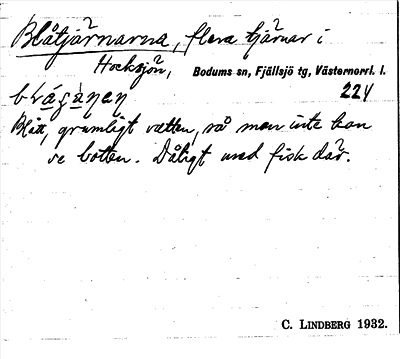 Blåtjärnarna, flera tjärnar i
Hocksjön, Bodums sn, Fjällsjö tg, Västernorrl. l.
224
Blått, grumligt vatten, så man inte kan
se botten. Dåligt med fisk där.
C. LINDBERG 1932.